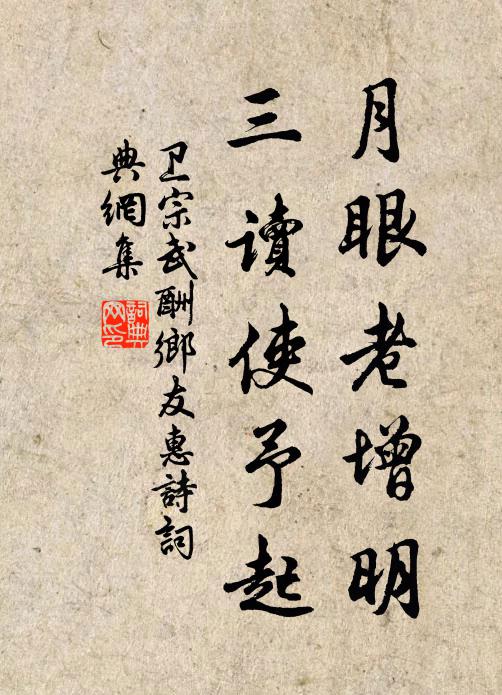 月眼老增明
三讀使予起
卫宗武酬鄉友惠詩詞
典網集
詞典
网印